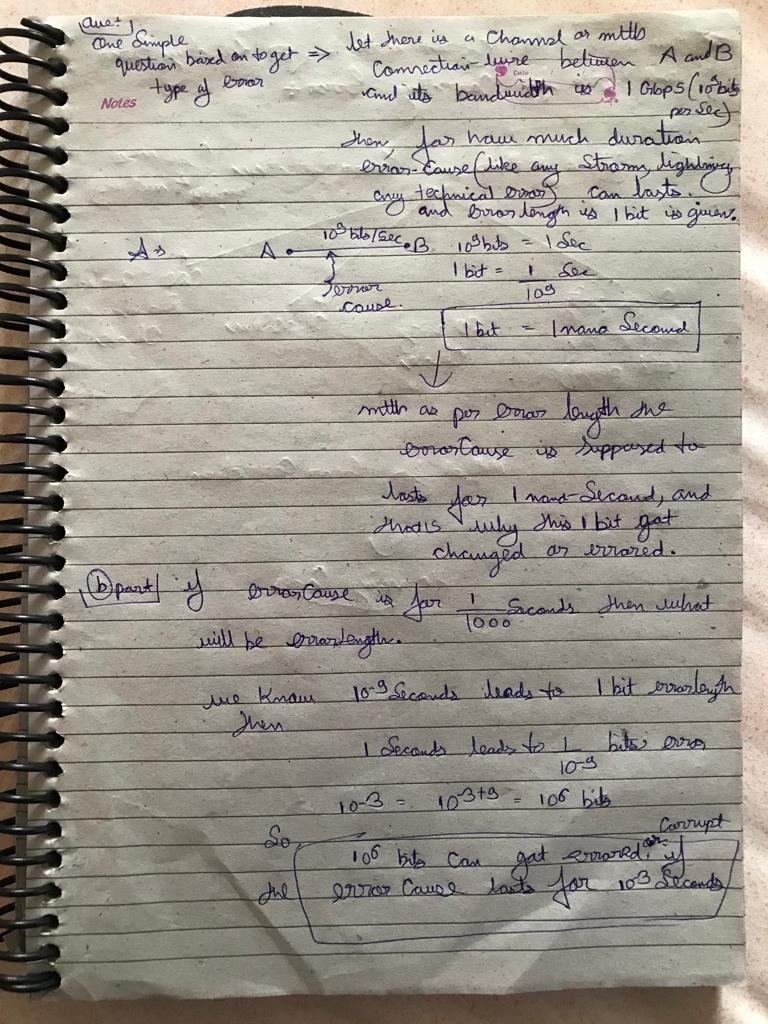 Que: 1
One Simple
question based on to get
type of error
Notes
⇒ let there is a Channel or mtlb
Connection-wire between A and B
Date
and its bandwidth is 1 Gbps (10⁹ bits
per Sec)
then, for how much duration
error-cause (like any Strom, lightning
any technical error) can lasts.
and error length is 1 bit is given.
A→
A 10⁹ bits/sec B
error
cause.
10⁹ bits = 1 Sec
1 bit = 1/10⁹ Sec
1 bit = 1 nano Second
mtlb as per error length the
errorCause is supposed to
lasts for 1 nano-Second, and
thatis why this 1 bit got
changed or errored.
(b) part if errorCause is for 1/1000 Seconds then what
will be errorlength.
we Know 10⁻⁹ Seconds leads to 1 bit errorlength
then
1 Seconds leads to 1/10⁻⁹ bits error
10⁻³ = 10⁻³⁺⁹ = 10⁶ bits
So,
10⁶ bits can get errored or Corrupt if
the error Cause lasts for 10⁻³ Seconds